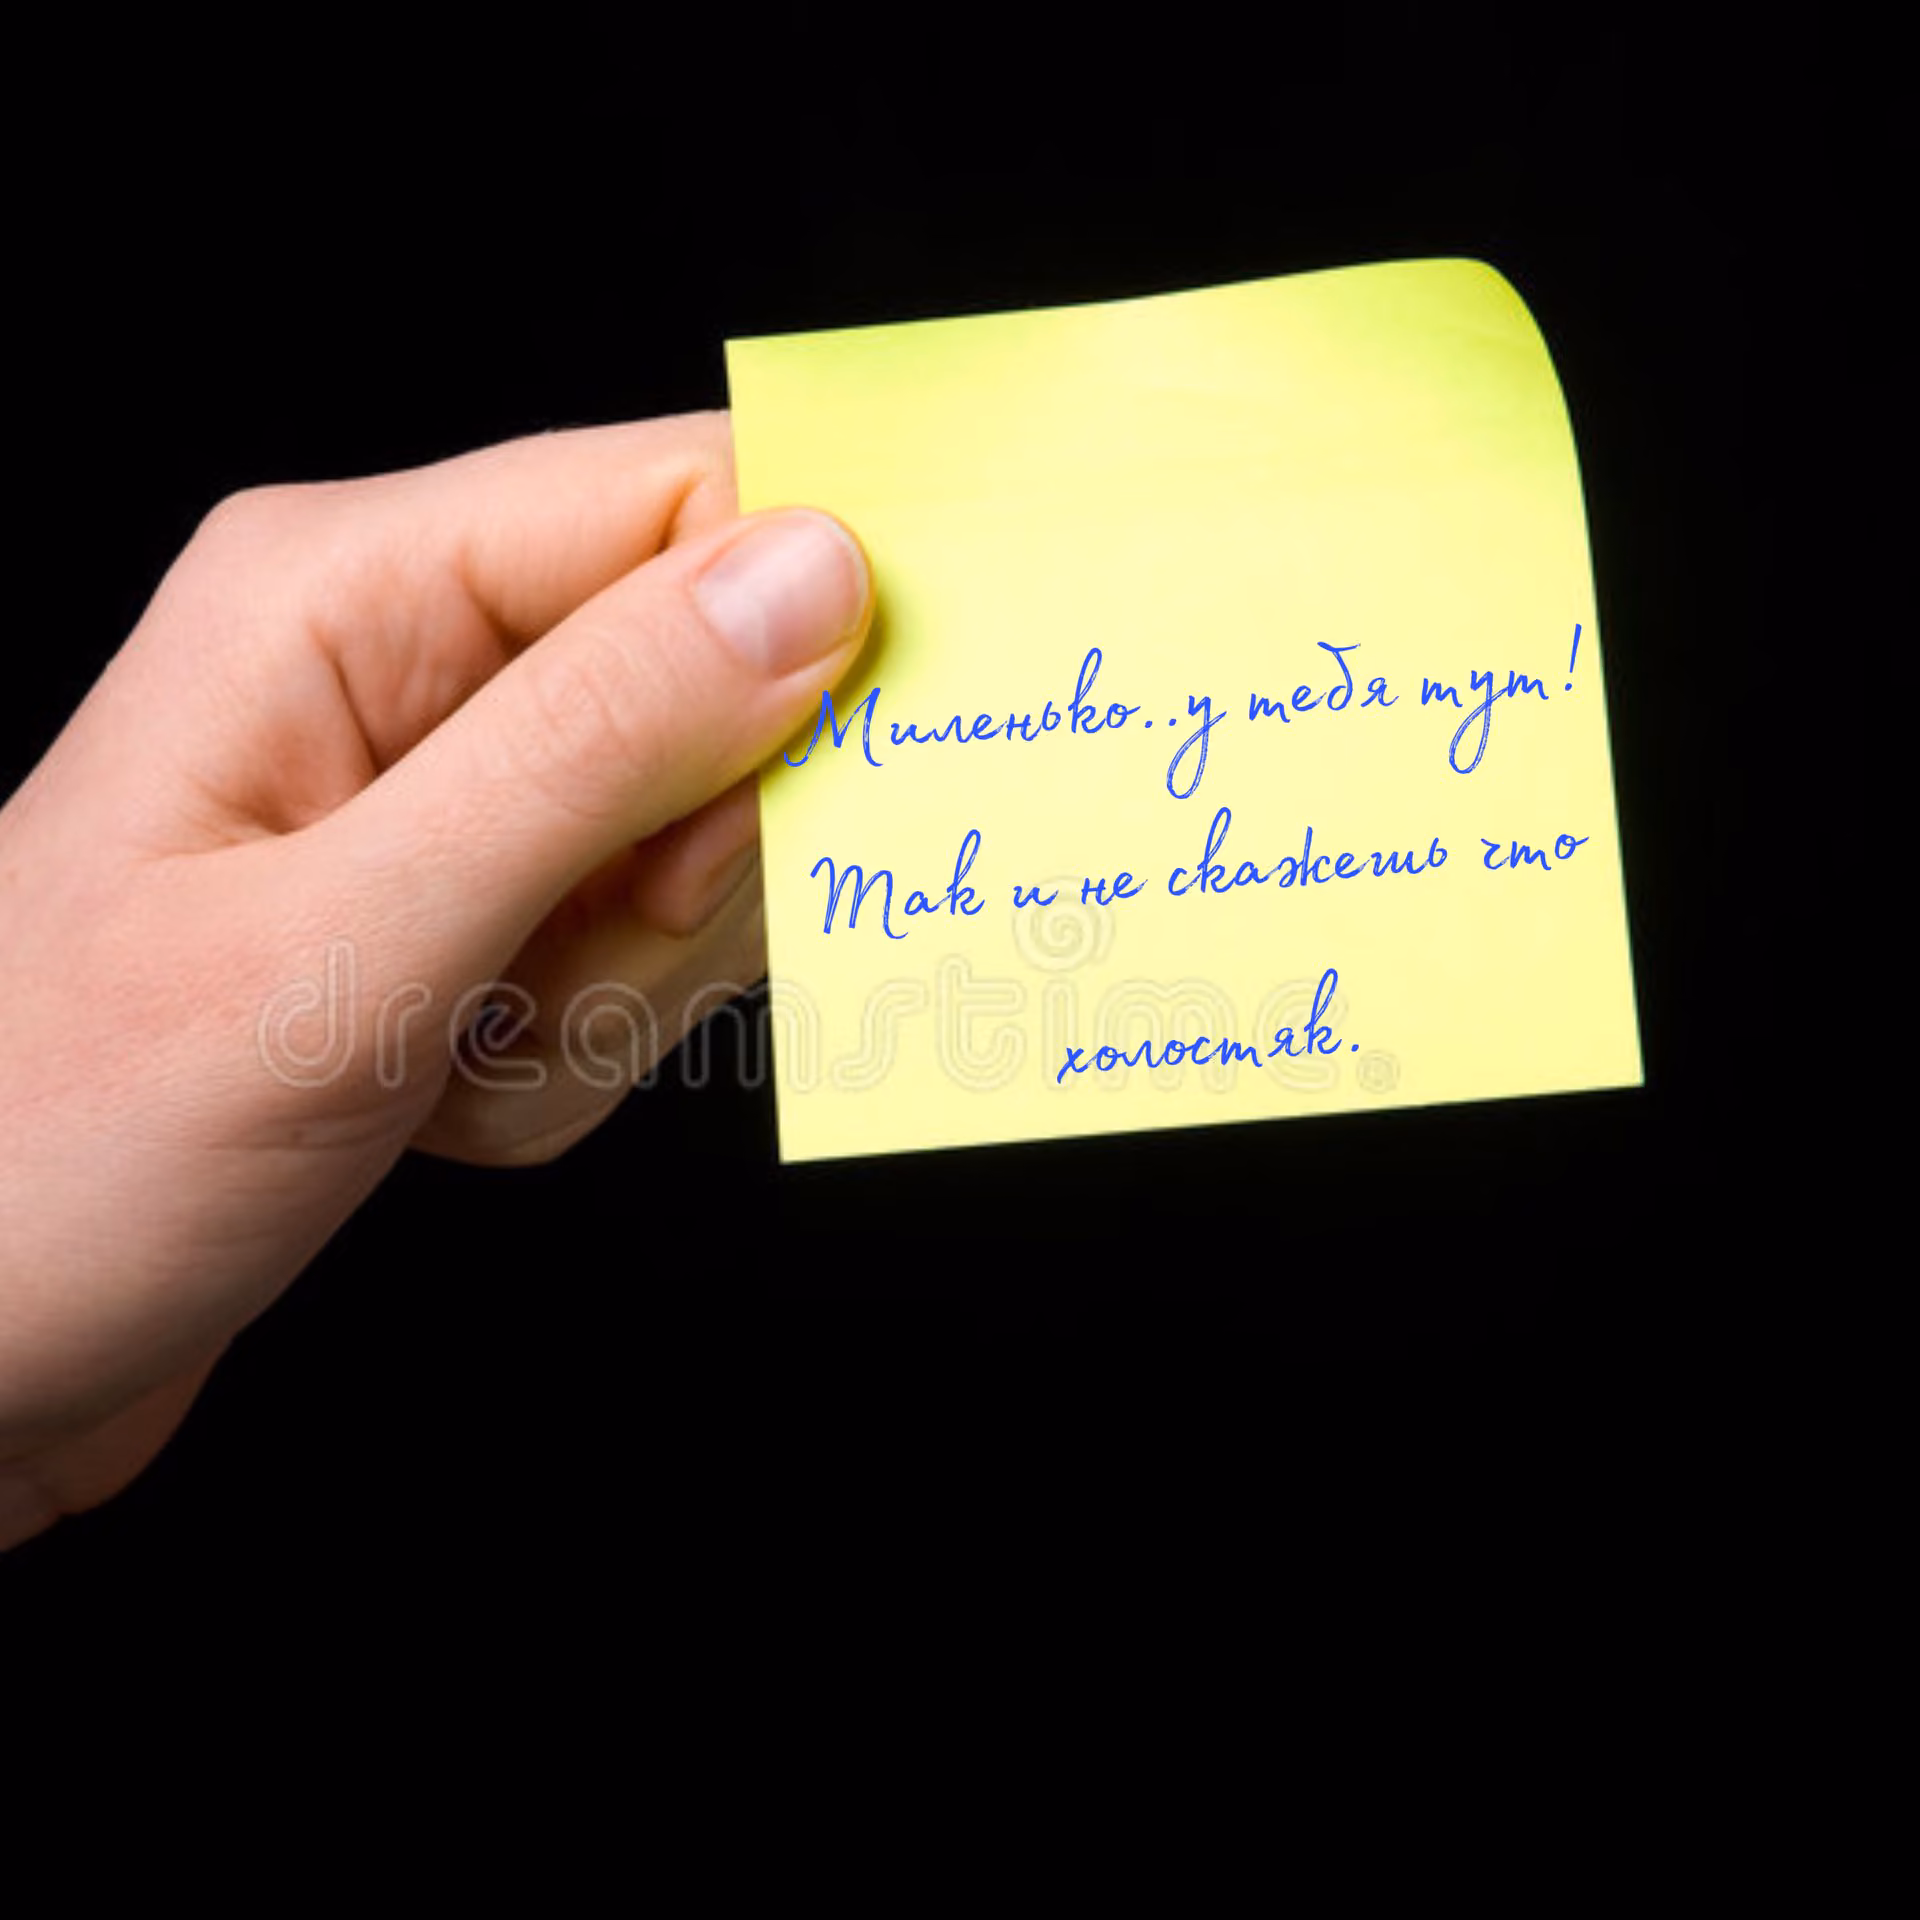 Миленько..у тебя тут!
Так и не скажешь что
холостяк.
dreamstime